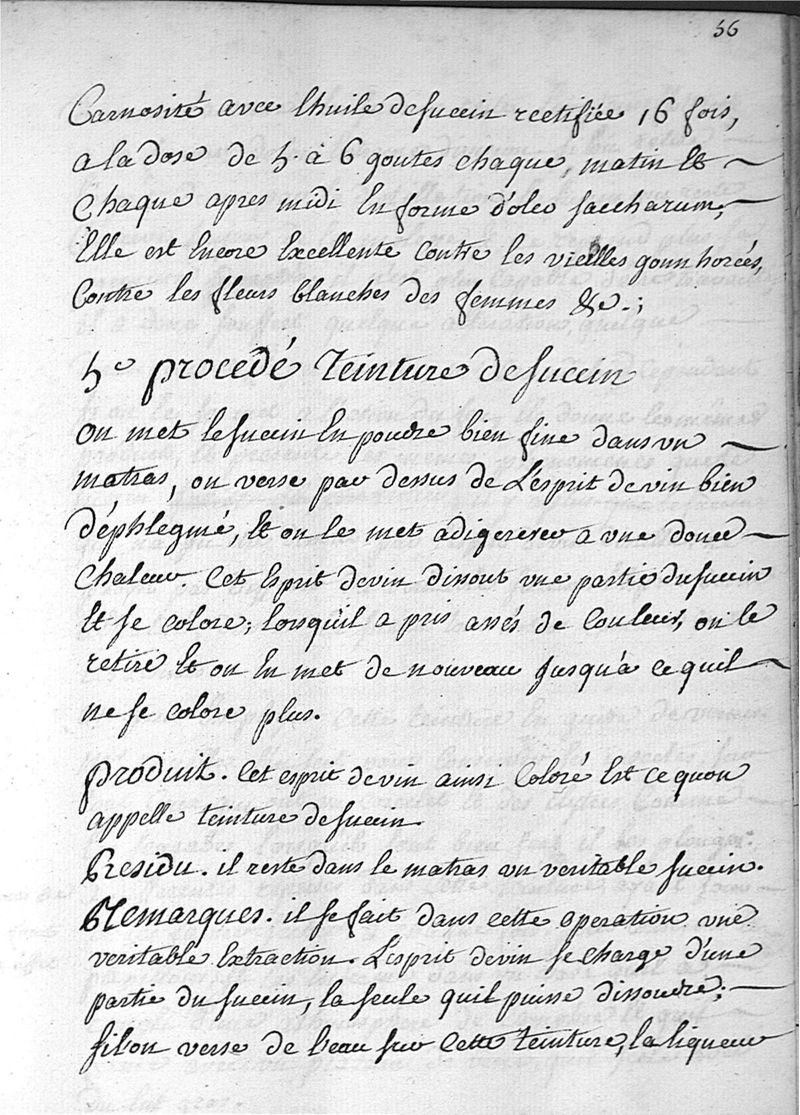 56
Carnosité avec lhuile desuccin rectifiée 16 fois,
a la dose de 5. à 6 goutes chaque, matin Et
Chaque apres midi En forme d'oleo saccharum;
Elle est Encore Excellente Contre les vieilles gonnhorées,
Contre les fleurs blanches des femmes &c.;
5e procedé Teinture desuccin
On met lesuccin En poudre bien fine dans vn
matras, on verse par dessus de L'esprit devin bien
déphlegmé, Et on le met adigerer a vne douce
Chaleur. Cet Esprit devin dissout vne partie dusuccin
Et se colore; lorsqu'il a pris assés de Couleur, on le
retire Et on En met de nouveau Jusqu'à ce quil
ne se colore plus.
produit. Cet esprit devin ainsi Coloré Est ce quon
appelle teinture desuccin.
Residu. il reste dans le matras vn veritable succin.
Remarques. il se fait dans cette operation vne
veritable Extraction. L'esprit devin se charge d'une
partie du succin, la seule quil puisse dissoudre;
silon verse de leau sur Cette teinture, la liqueur